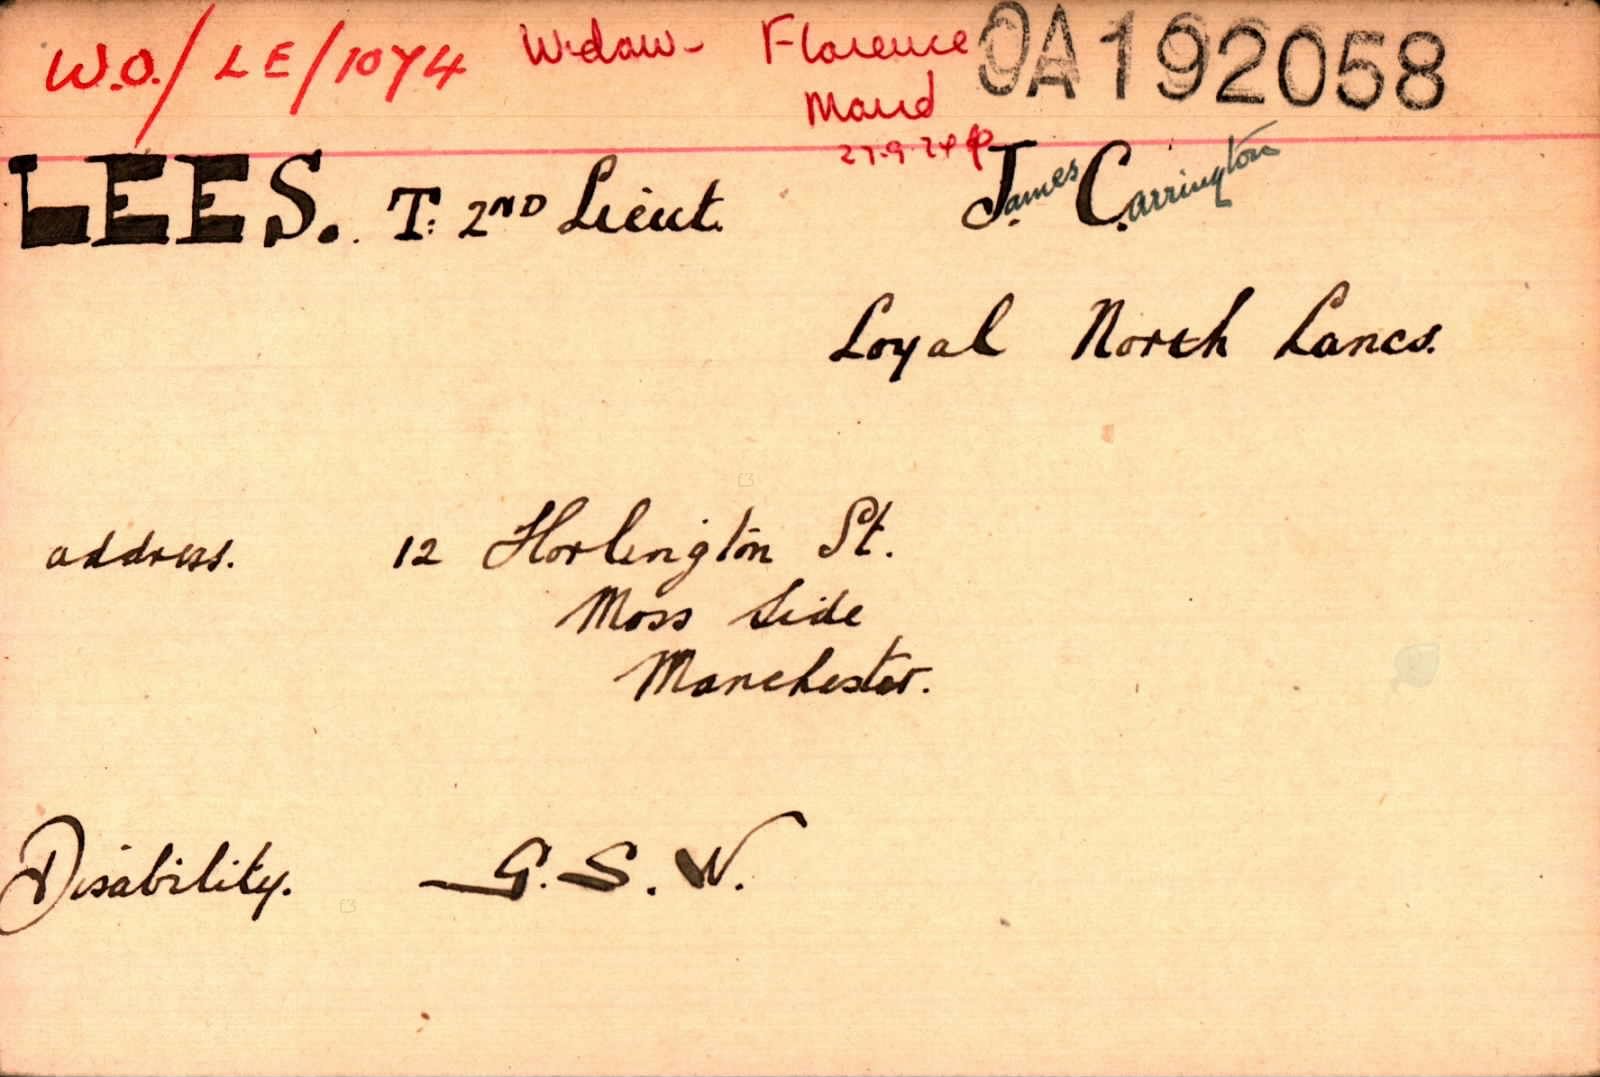 W.O./LE/1074 Widow - Florence OA192058
Maud
27.9.24
LEES. T: 2ND Lieut. James Carrington
Loyal North Lancs.
address. 12 Horlington St.
Moss Side
Manchester.
Disability. G.S.W.